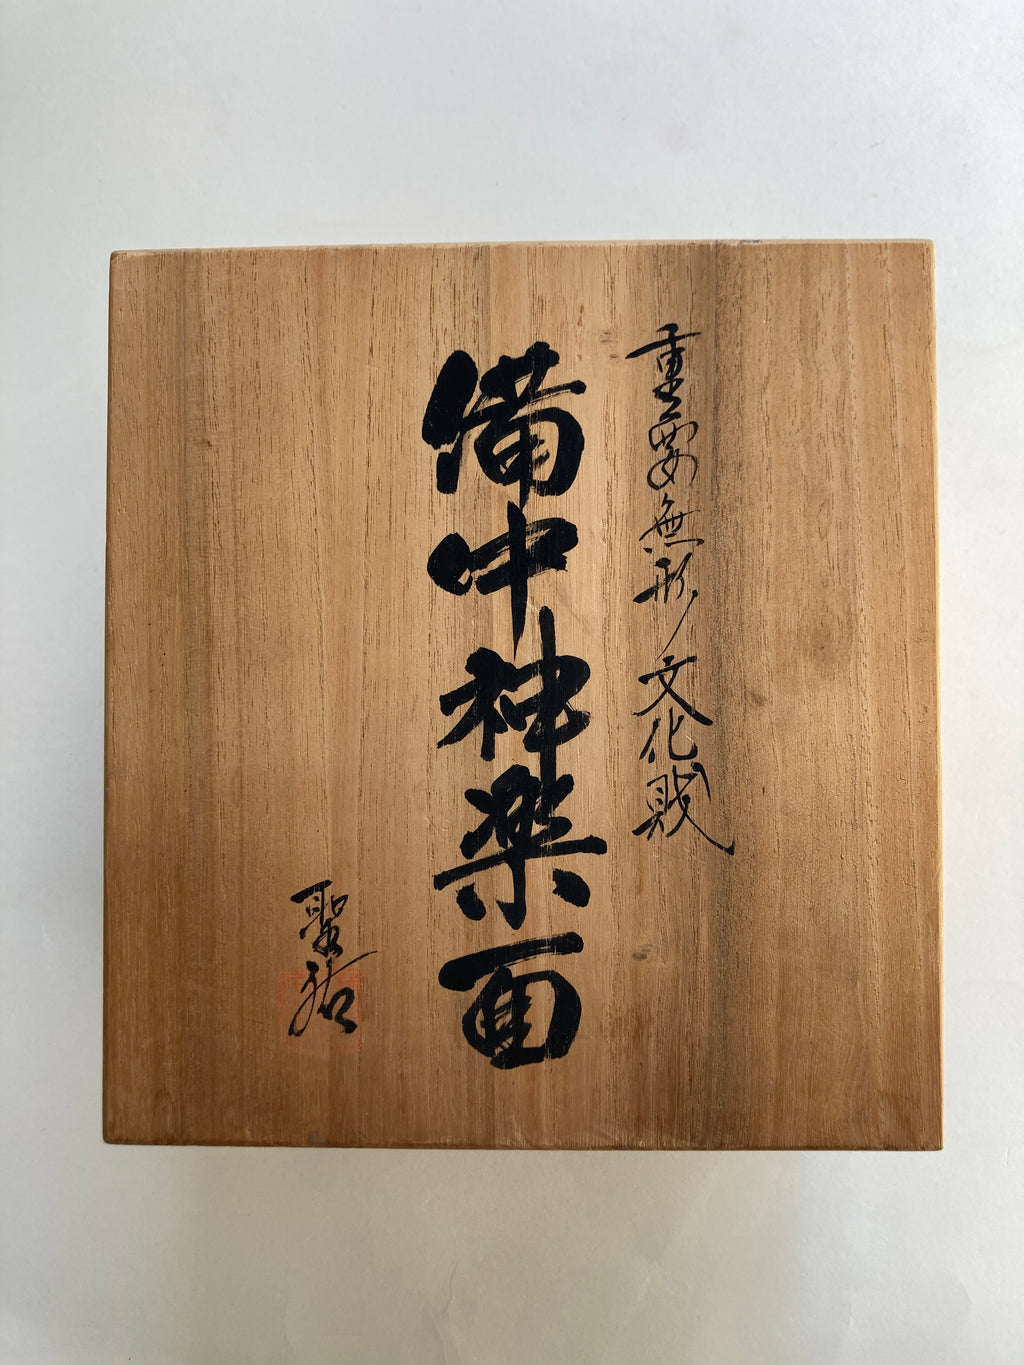 重要無形文化財
備中神楽面
聖祐